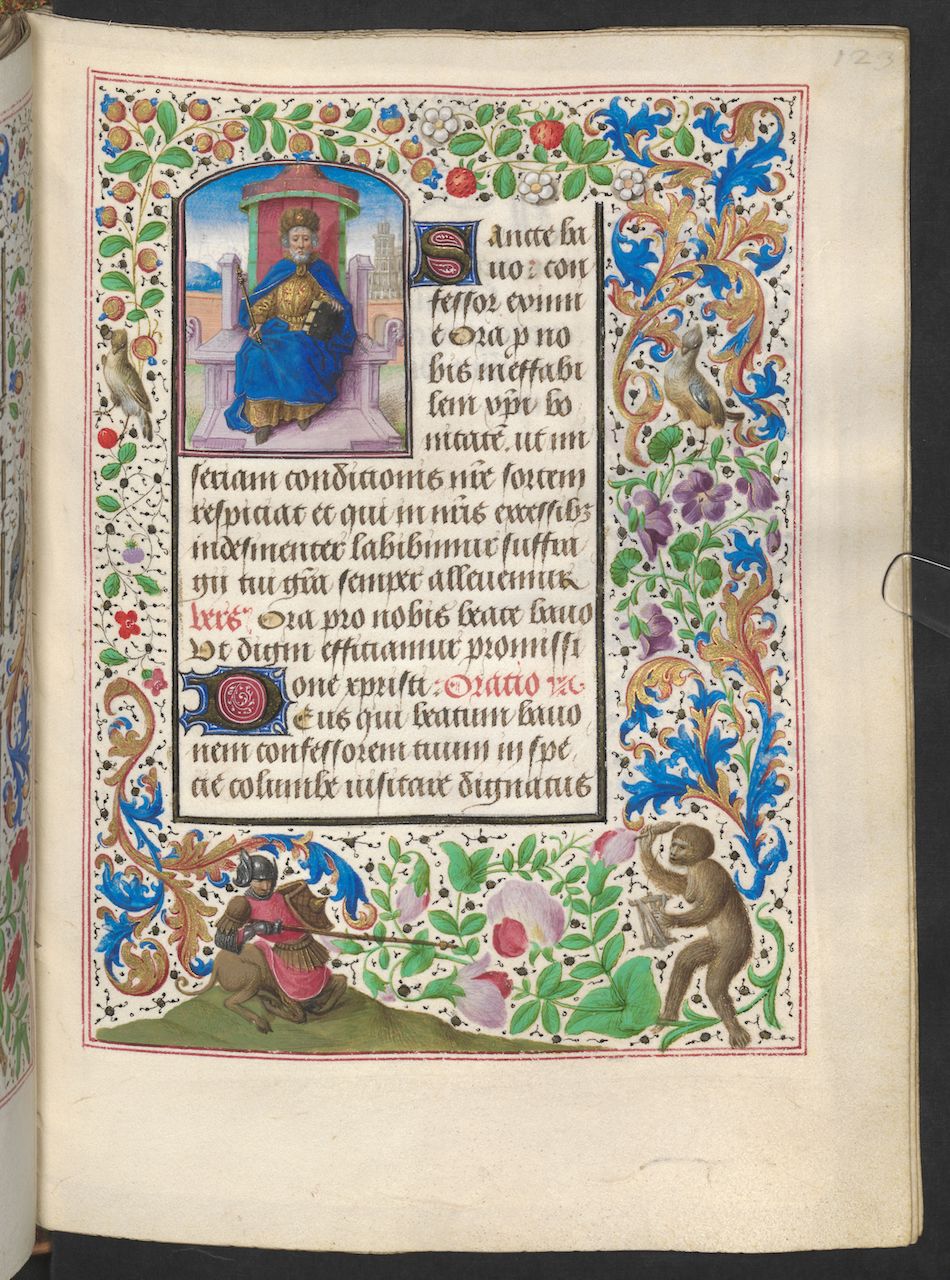 123
Sancte ba
uo: con
fessor eximi
e Ora p no
bis ineffabi
lem xp̄i bo
nitatē. ut mi
seriam conditionis nr̄e sortem
respiciat et qui in nr̄is excessibꝫ
indesinenter labibimur suffra
gii tui gr̄a semper alleuemur
vers' Ora pro nobis beate bauo
Vt digni efficiamur promissi
one xpristi: Oratio
Deus qui beatum bauo
nem confessorem tuum in spe
cie columbe uisitare dignatus